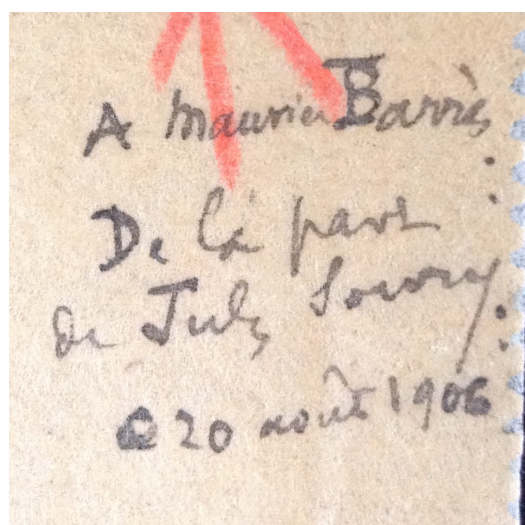 A Maurice Barrès.
De la part
de Jules Soury.
20 août 1906